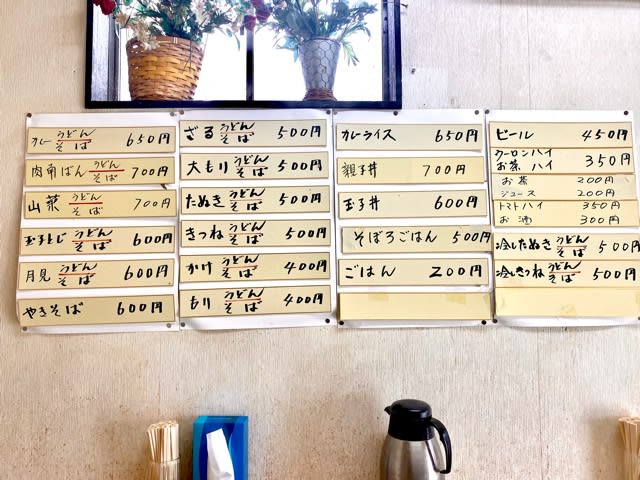 カレー うどん そば 650円
肉南ばん うどん そば 700円
山菜 うどん そば 700円
玉子とじ うどん そば 600円
月見 うどん そば 600円
やきそば 600円
ざる うどん そば 500円
大もり うどん そば 500円
たぬき うどん そば 500円
きつね うどん そば 500円
かけ うどん そば 400円
もり うどん そば 400円
カレーライス 650円
親子丼 700円
玉子丼 600円
そぼろごはん 500円
ごはん 200円
ビール 450円
ウーロンハイ
お茶 ハイ 350円
お茶 200円
ジュース 200円
トマトハイ 350円
お酒 300円
冷したぬき うどん そば 500円
冷しきつね うどん そば 500円